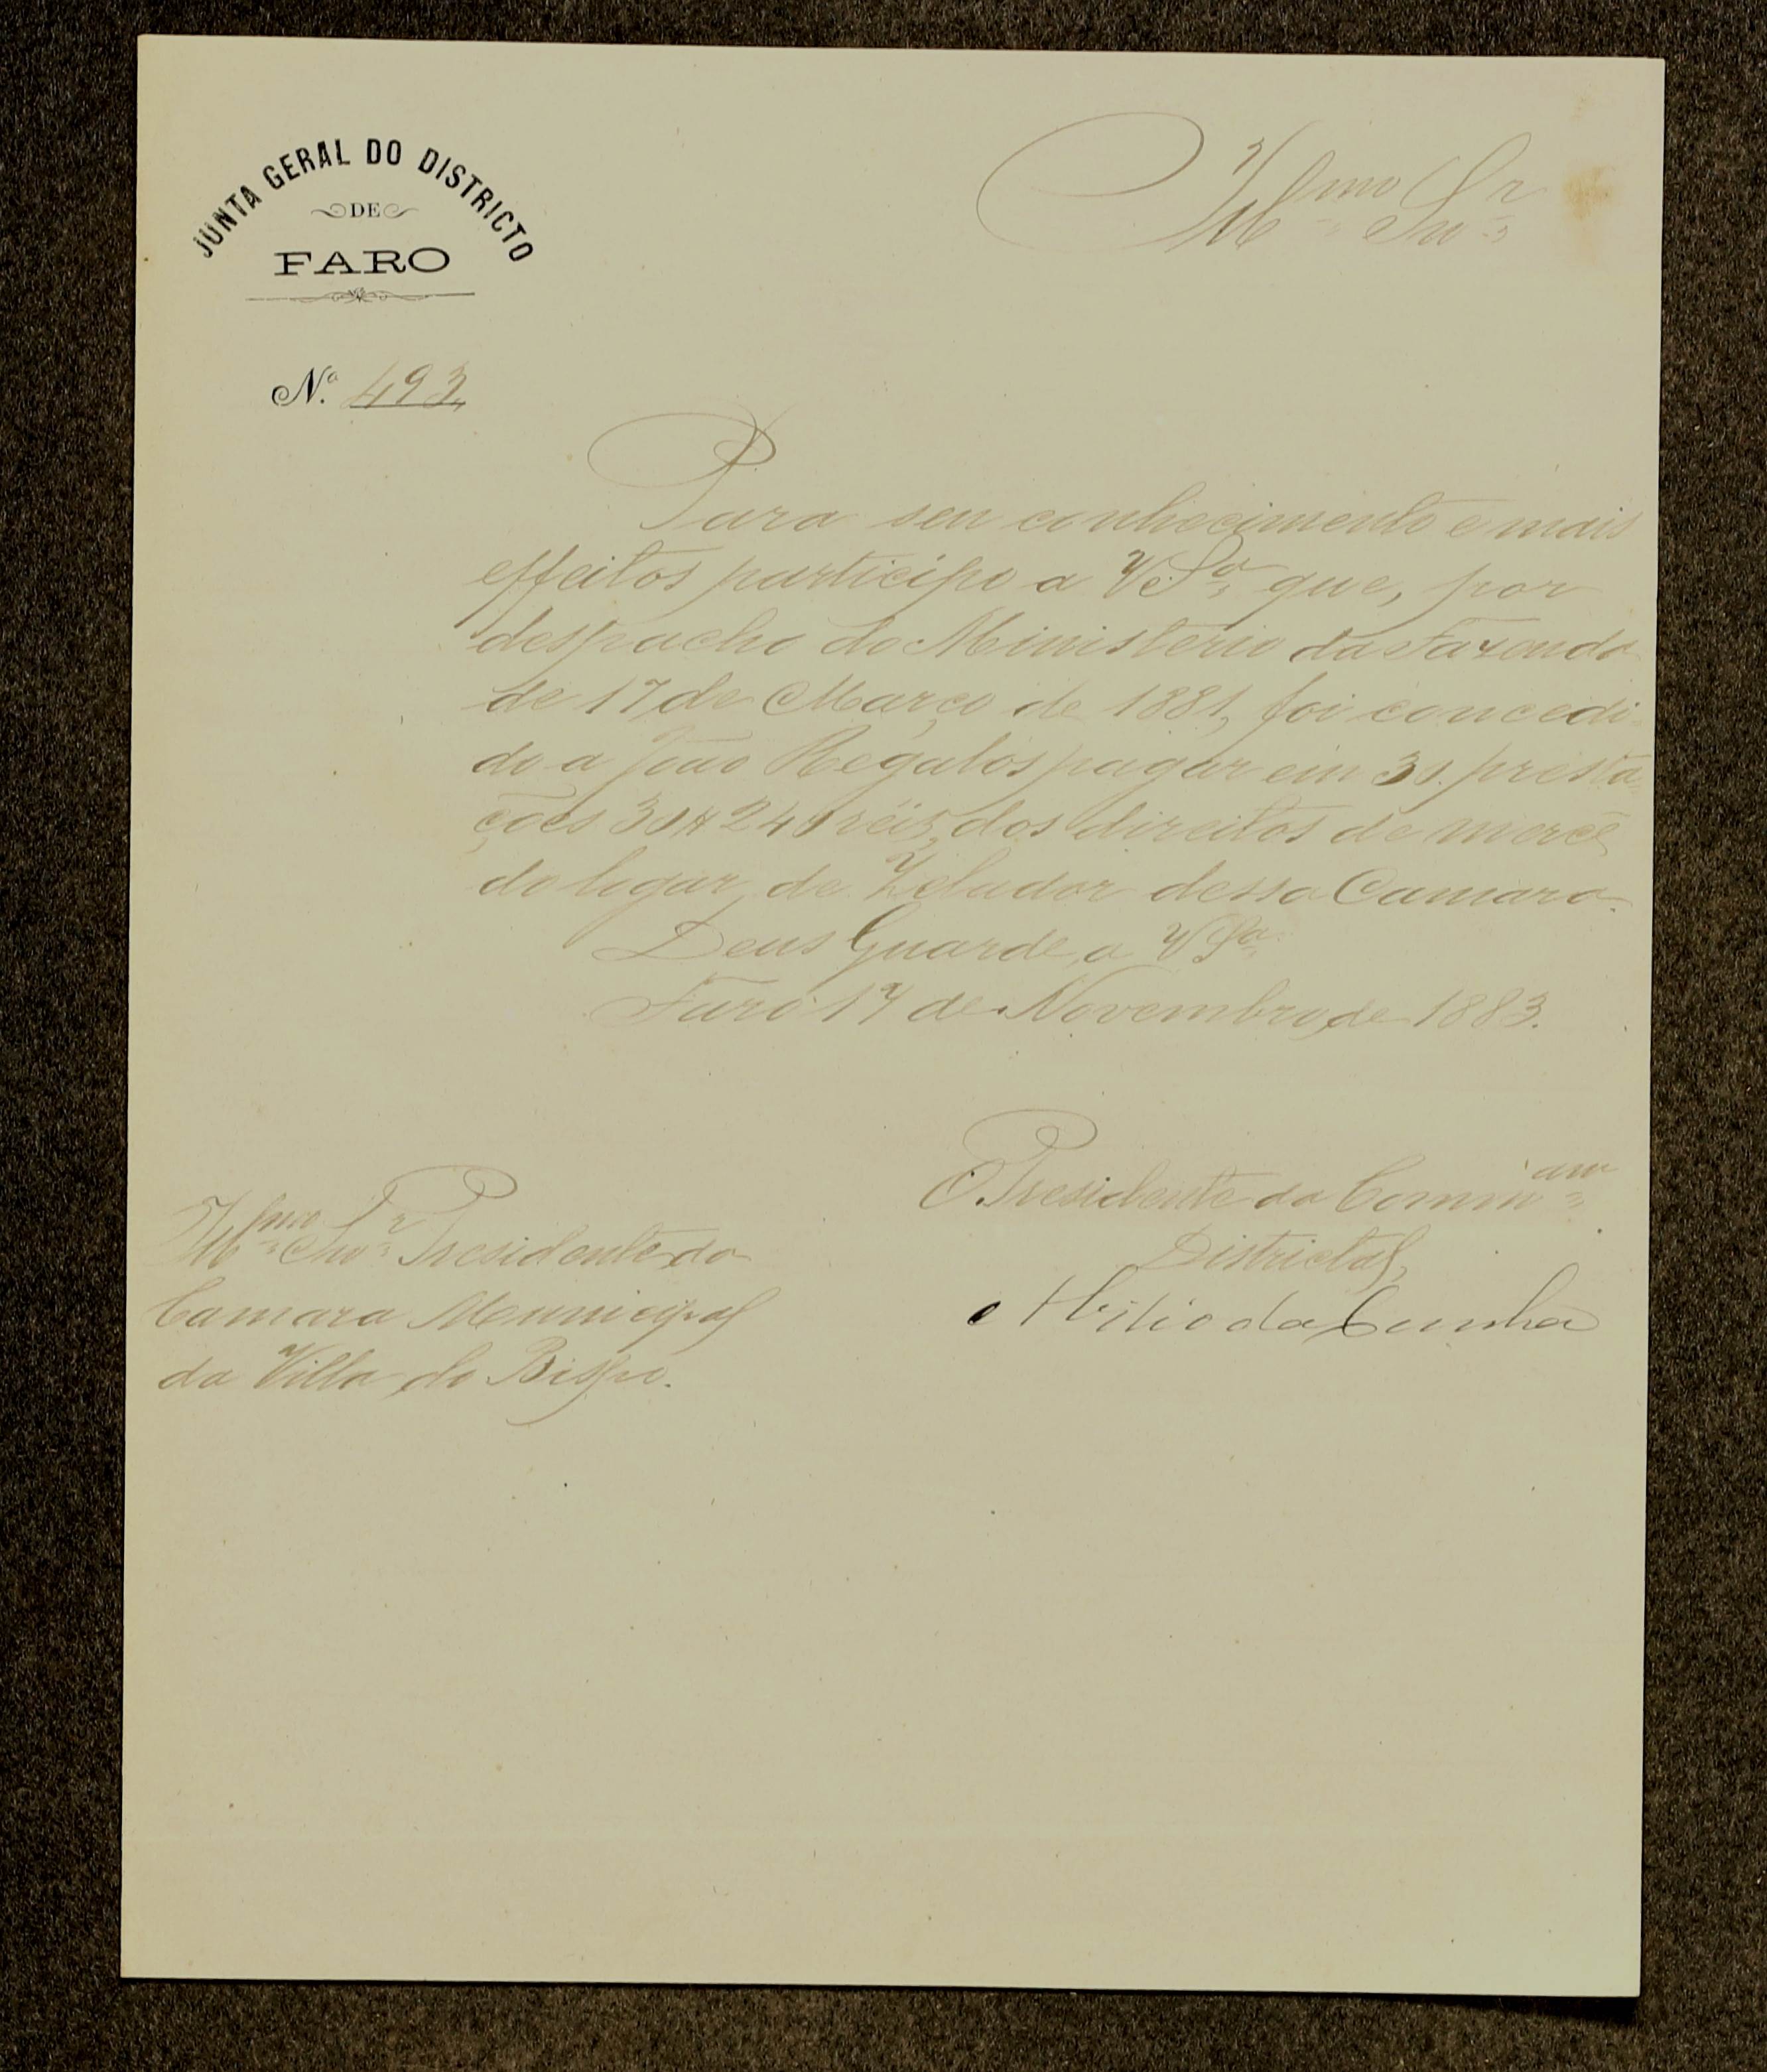 JUNTA GERAL DO DISTRICTO
DE
FARO
Nº 493
Illmo Snr
Para seu conhecimento e mais
effeitos participo a V Sª que, por
despacho do Ministerio da Fazenda
de 17 de Março de 1881, foi concedi-
do a João Regalos pagar em 30 presta-
ções 30$240 réis, dos direitos de mercê
do logar de Zelador dessa Camara.
Deus Guarde a V Sª
Faro 17 de Novembro de 1883.
O Presidente da Commam
Districtal,
da Cunha
Illmo Snr Presidente da
Camara Municipal
da Villa do Bispo.